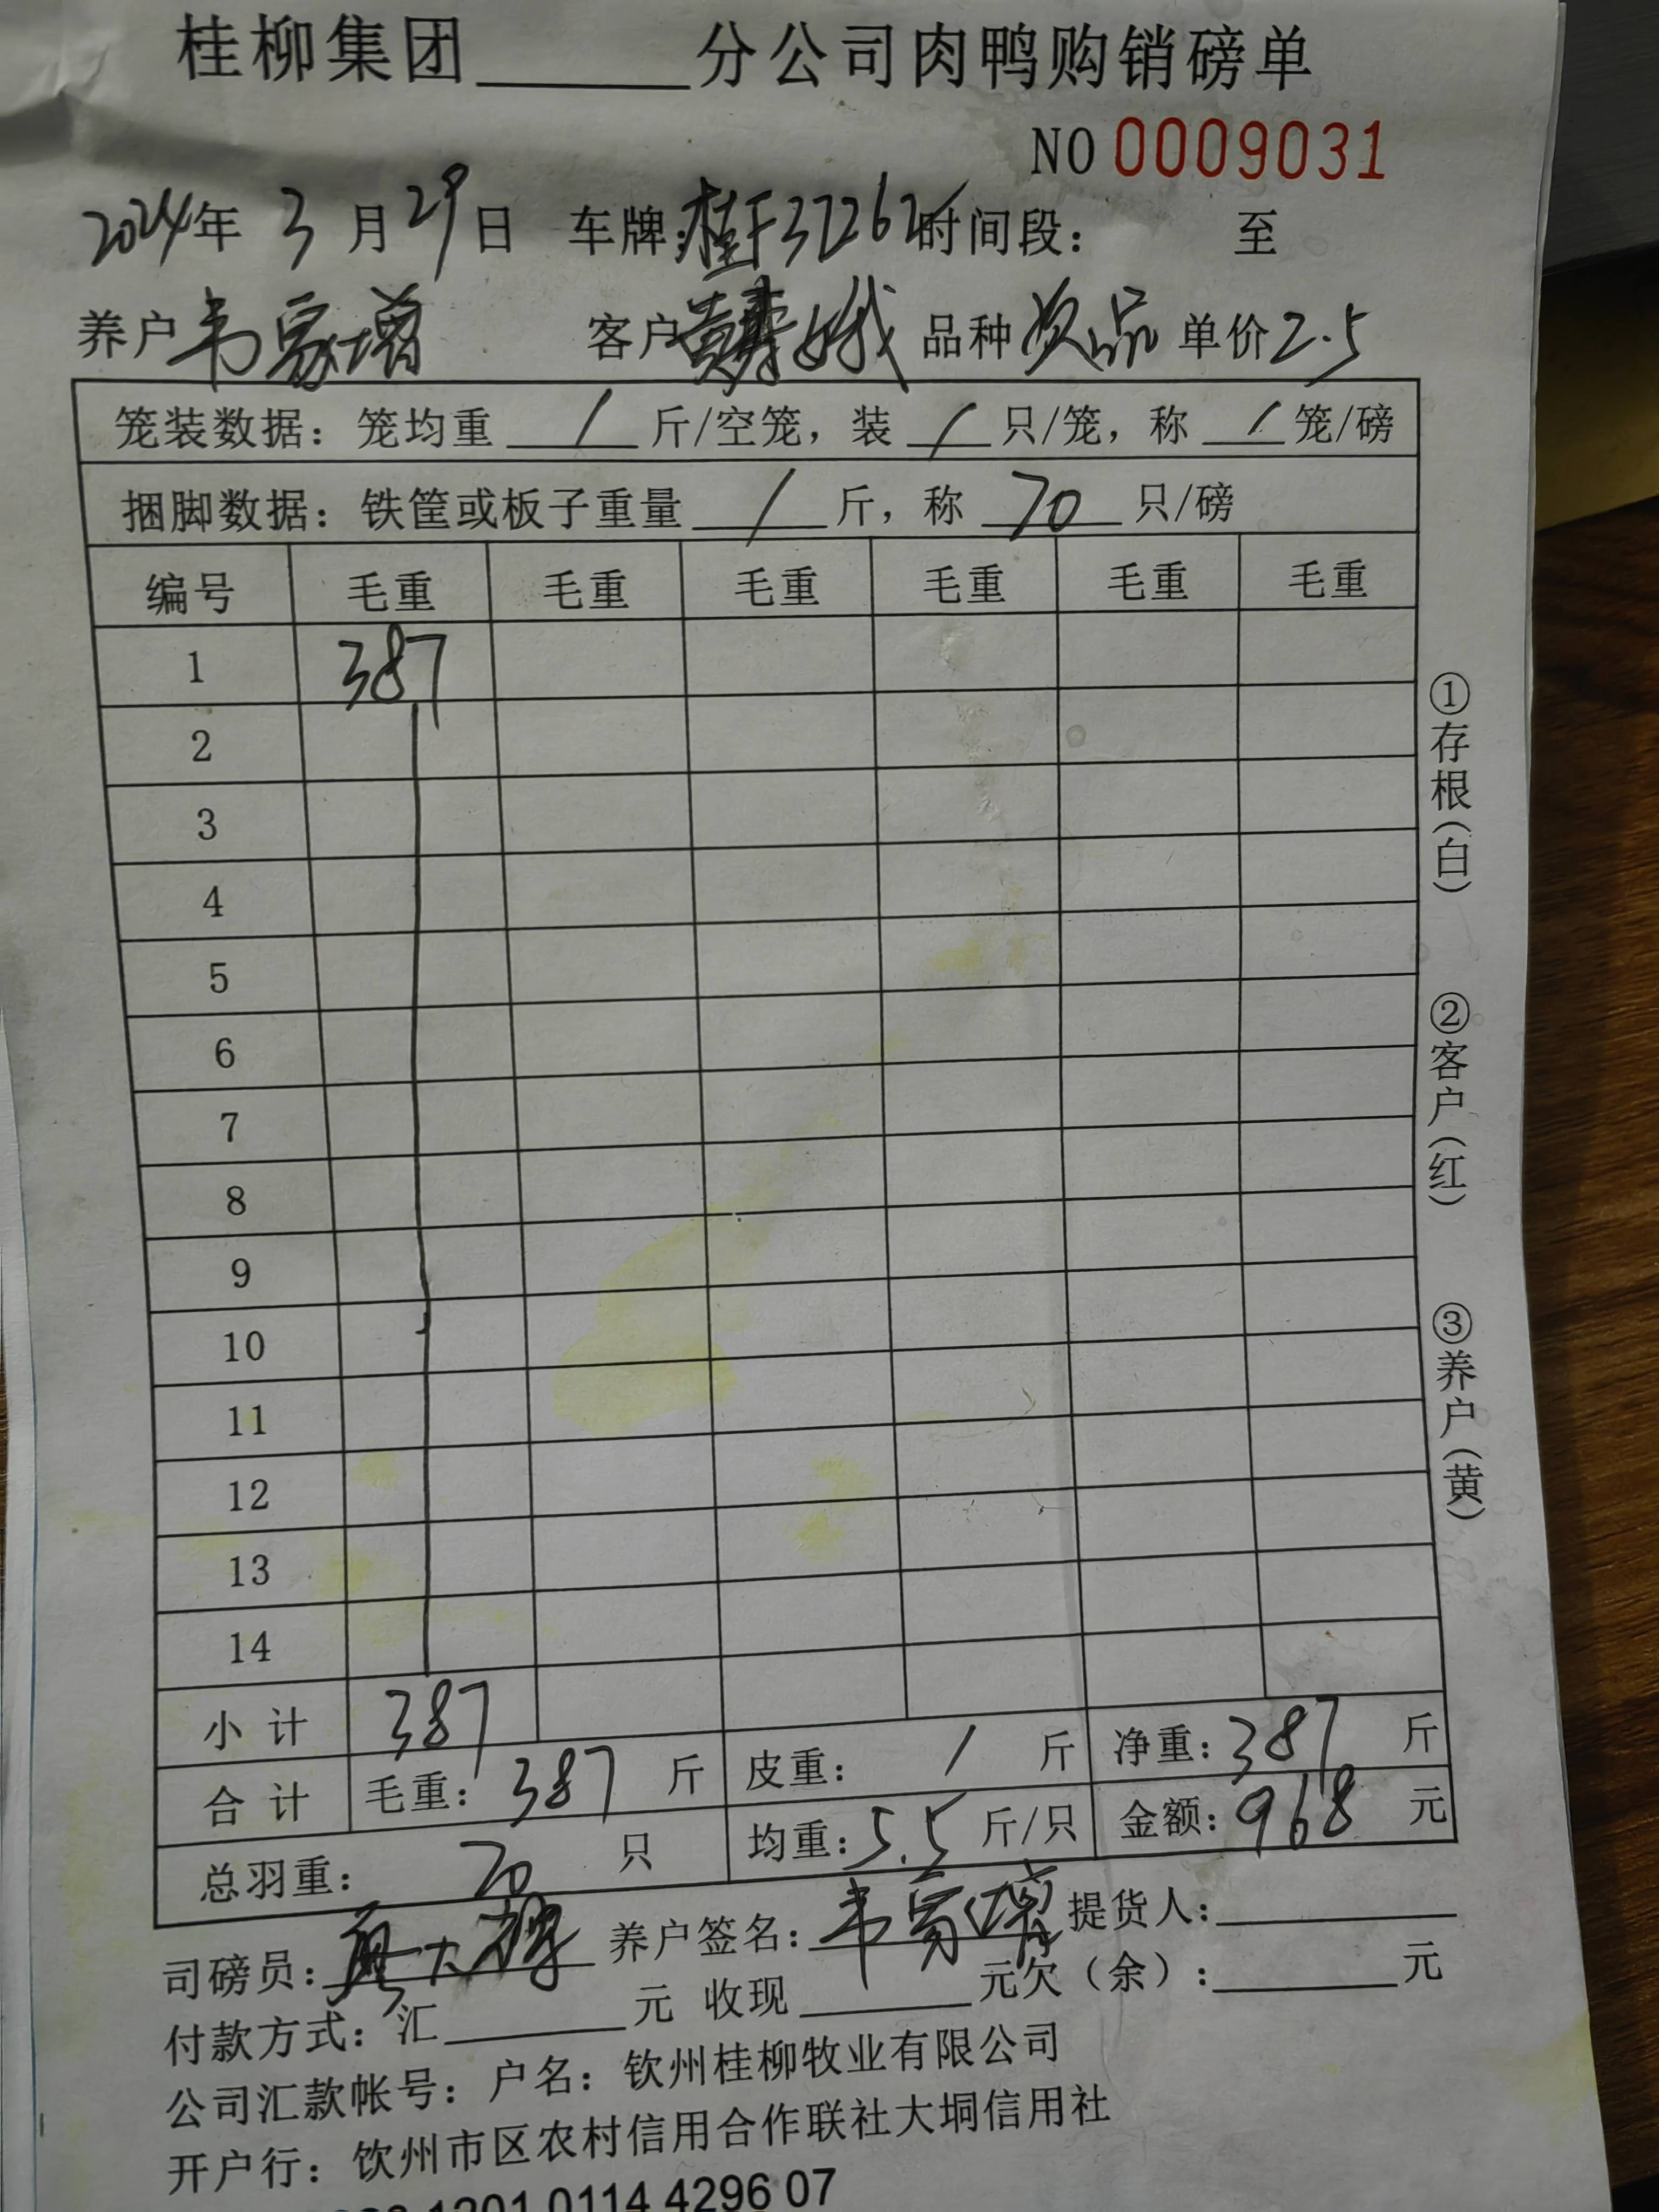 桂柳集团______分公司肉鸭购销磅单
NO 0009031
2024年 3 月 29 日 车牌:桂F37262 时间段: 至
养户 韦家增 客户 黄寿娥 品种 次品 单价 2.5
笼装数据: 笼均重 / 斤/空笼, 装 / 只/笼, 称 / 笼/磅
捆脚数据: 铁筐或板子重量 / 斤, 称 70 只/磅
编号 毛重 毛重 毛重 毛重 毛重 毛重
1 387
2
3
4
5
6
7
8
9
10
11
12
13
14
小 计 387
合 计 毛重: 387 斤 皮重: / 斤 净重: 387 斤
总羽重: 70 只 均重: 5.5 斤/只 金额: 968 元
司磅员: 养户签名: 韦家增 提货人:
付款方式: 汇______元 收现______元欠(余):______元
公司汇款帐号: 户名: 钦州桂柳牧业有限公司
开户行: 钦州市区农村信用合作联社大垌信用社
1201 0114 4296 07
①存根(白)
②客户(红)
③养户(黄)